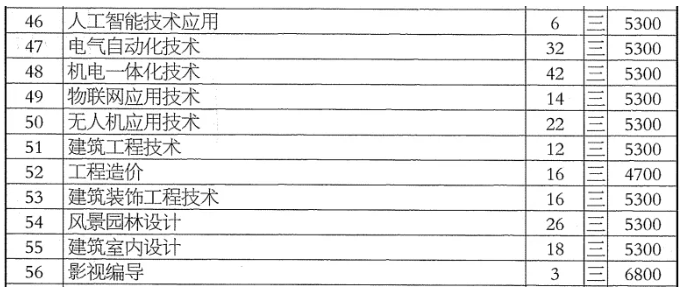 46 人工智能技术应用 6 三 5300
47 电气自动化技术 32 三 5300
48 机电一体化技术 42 三 5300
49 物联网应用技术 14 三 5300
50 无人机应用技术 22 三 5300
51 建筑工程技术 12 三 5300
52 工程造价 16 三 4700
53 建筑装饰工程技术 16 三 5300
54 风景园林设计 26 三 5300
55 建筑室内设计 18 三 5300
56 影视编导 3 三 6800